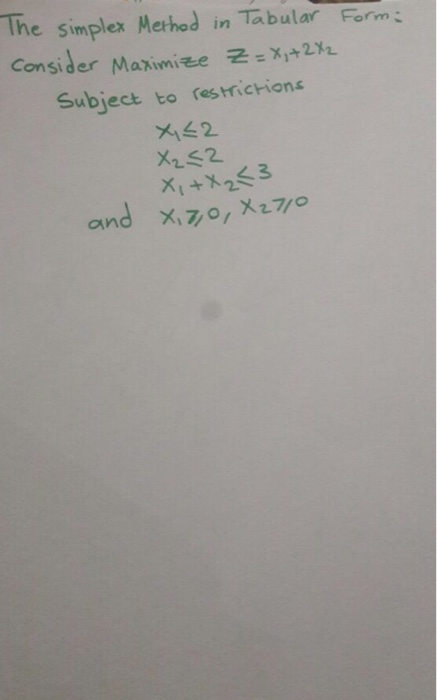 The simplex Method in Tabular Form:
Consider Maximize Z = x₁+2x₂
Subject to restrictions
x₁≤2
x₂≤2
x₁+x₂≤3
and x₁≥0, x₂≥0